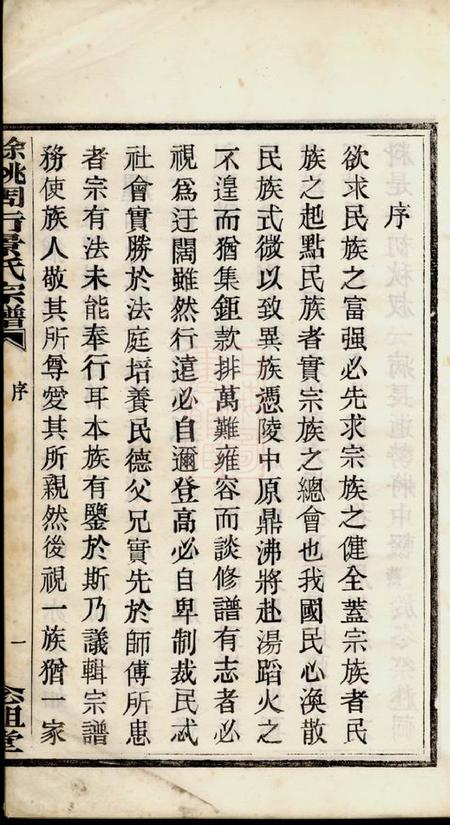 序
欲求民族之富强必先求宗族之健全蓋宗族者民
族之起點民族者實宗族之總會也我國民心渙散
民族式微以致異族憑陵中原鼎沸將赴湯蹈火之
不遑而猶集鉅款排萬難雍容而談修譜有志者必
視爲迂闊雖然行遠必自邇登高必自卑制裁民忒
社會實勝於法庭培養民德父兄實先於師傅所患
者宗有法未能奉行耳本族有鑒於斯乃議輯宗譜
務使族人敬其所尊愛其所親然後視一族猶一家
餘姚周行景氏宗譜
序
一
念祖堂